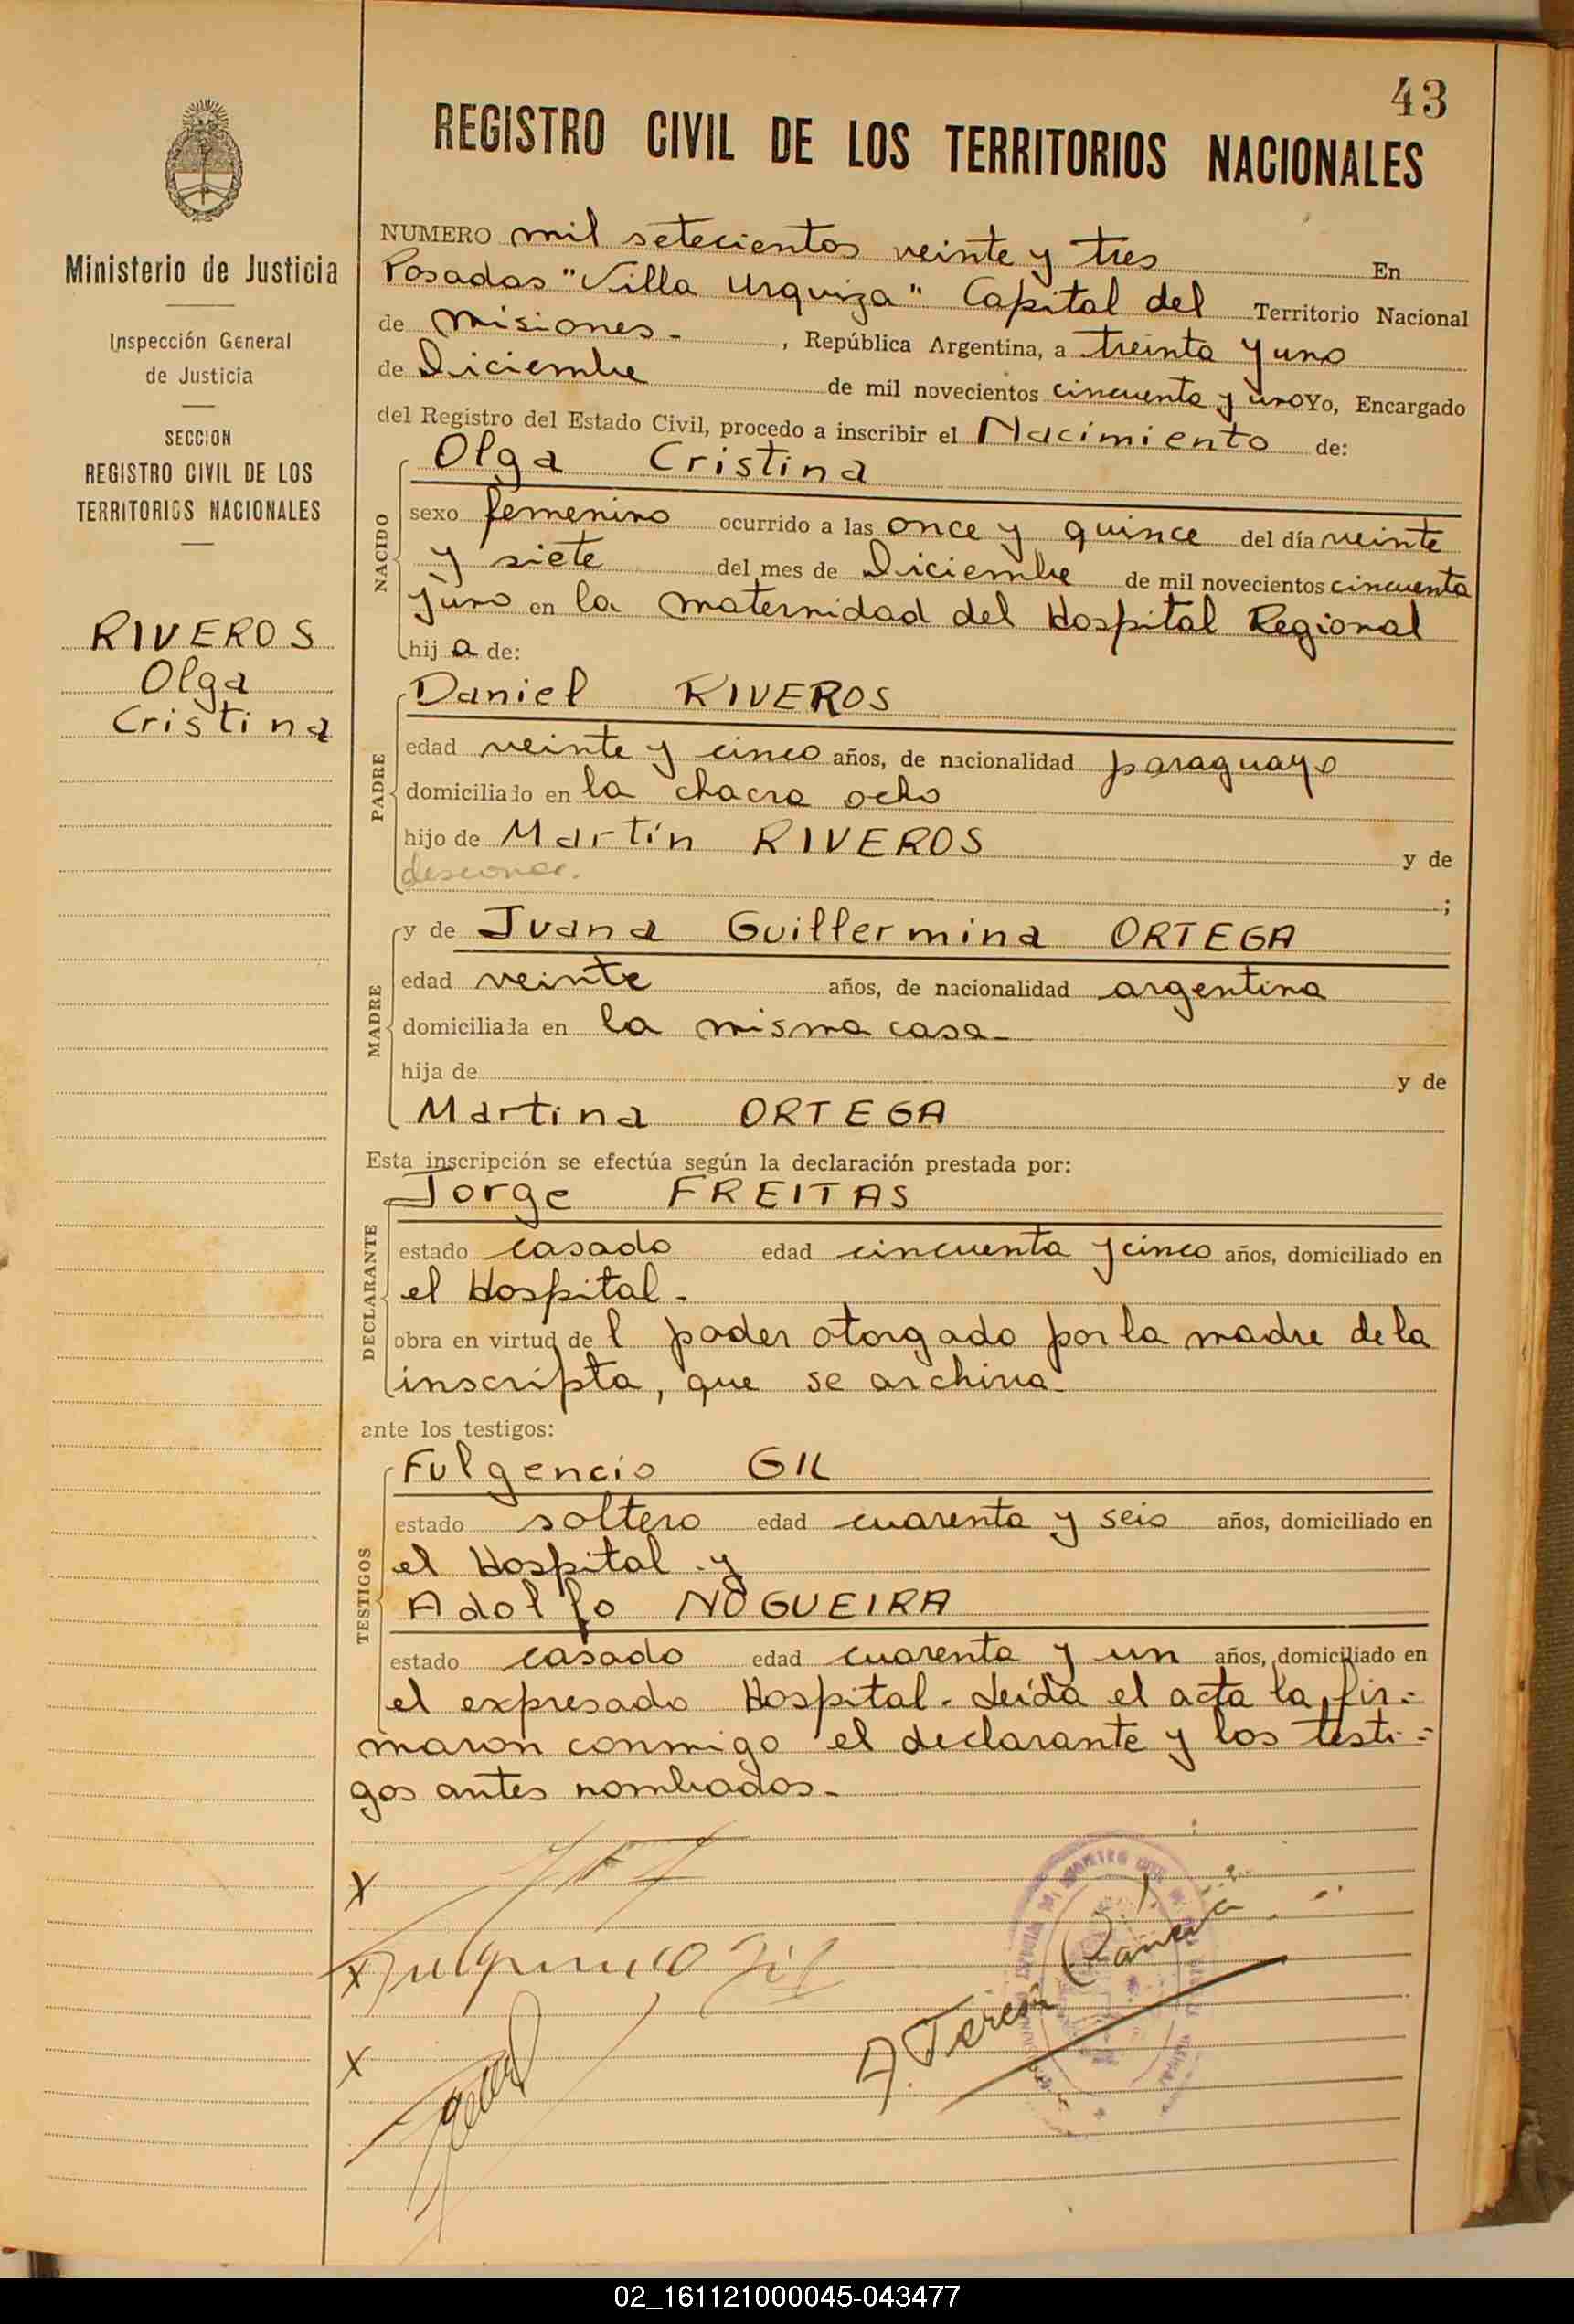 43
REGISTRO CIVIL DE LOS TERRITORIOS NACIONALES
Ministerio de Justicia
Inspección General
de Justicia
SECCION
REGISTRO CIVIL DE LOS
TERRITORIOS NACIONALES
RIVEROS
Olga
Cristina
NUMERO mil setecientos veinte y tres En
Posadas "Villa Urquiza" Capital del Territorio Nacional
de Misiones.- , República Argentina, a treinta y uno
de Diciembre de mil novecientos cincuenta y uno Yo, Encargado
del Registro del Estado Civil, procedo a inscribir el Nacimiento de:
NACIDO
Olga Cristina
sexo femenino ocurrido a las once y quince del día veinte
y siete del mes de Diciembre de mil novecientos cincuenta
y uno en la maternidad del Hospital Regional
hij a de:
PADRE
Daniel RIVEROS
edad veinte y cinco años, de nacionalidad paraguayo
domiciliado en la chacra ocho
hijo de Martín RIVEROS y de
desconoc. ;
MADRE
y de Juana Guillermina ORTEGA
edad veinte años, de nacionalidad argentina
domiciliada en la misma casa-
hija de y de
Martina ORTEGA
Esta inscripción se efectúa según la declaración prestada por:
DECLARANTE
Jorge FREITAS
estado casado edad cincuenta y cinco años, domiciliado en
el Hospital.-
obra en virtud de l poder otorgado por la madre de la
inscripta, que se archiva.-
ante los testigos:
TESTIGOS
Fulgencio GIL
estado soltero edad cuarenta y seis años, domiciliado en
el Hospital.y
Adolfo NOGUEIRA
estado casado edad cuarenta y un años, domiciliado en
el expresado Hospital.- Leída el acta la fir-=
maron conmigo el declarante y los testi-=
gos antes nombrados.-
X
X Fulgencio Gil
X
A. Teresa
02_161121000045-043477